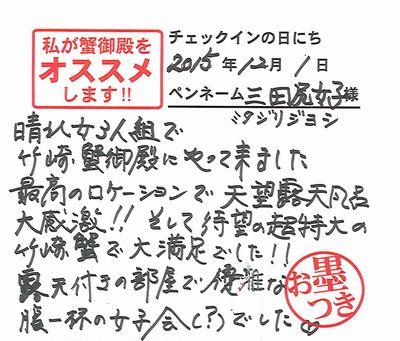 私が蟹御殿を
オススメ
します!!
チェックインの日にち
2015年12月1日
ペンネーム三田尻女子様
ミタジリジョシ
晴れ女3人組で
竹崎蟹御殿にやって来ました
最高のロケーションで天望露天風呂
大感激!! そして待望の超特大の
竹崎蟹で大満足でした!!
露天付きの部屋で優雅な
腹一杯の女子会(?)でした♡
お墨つき